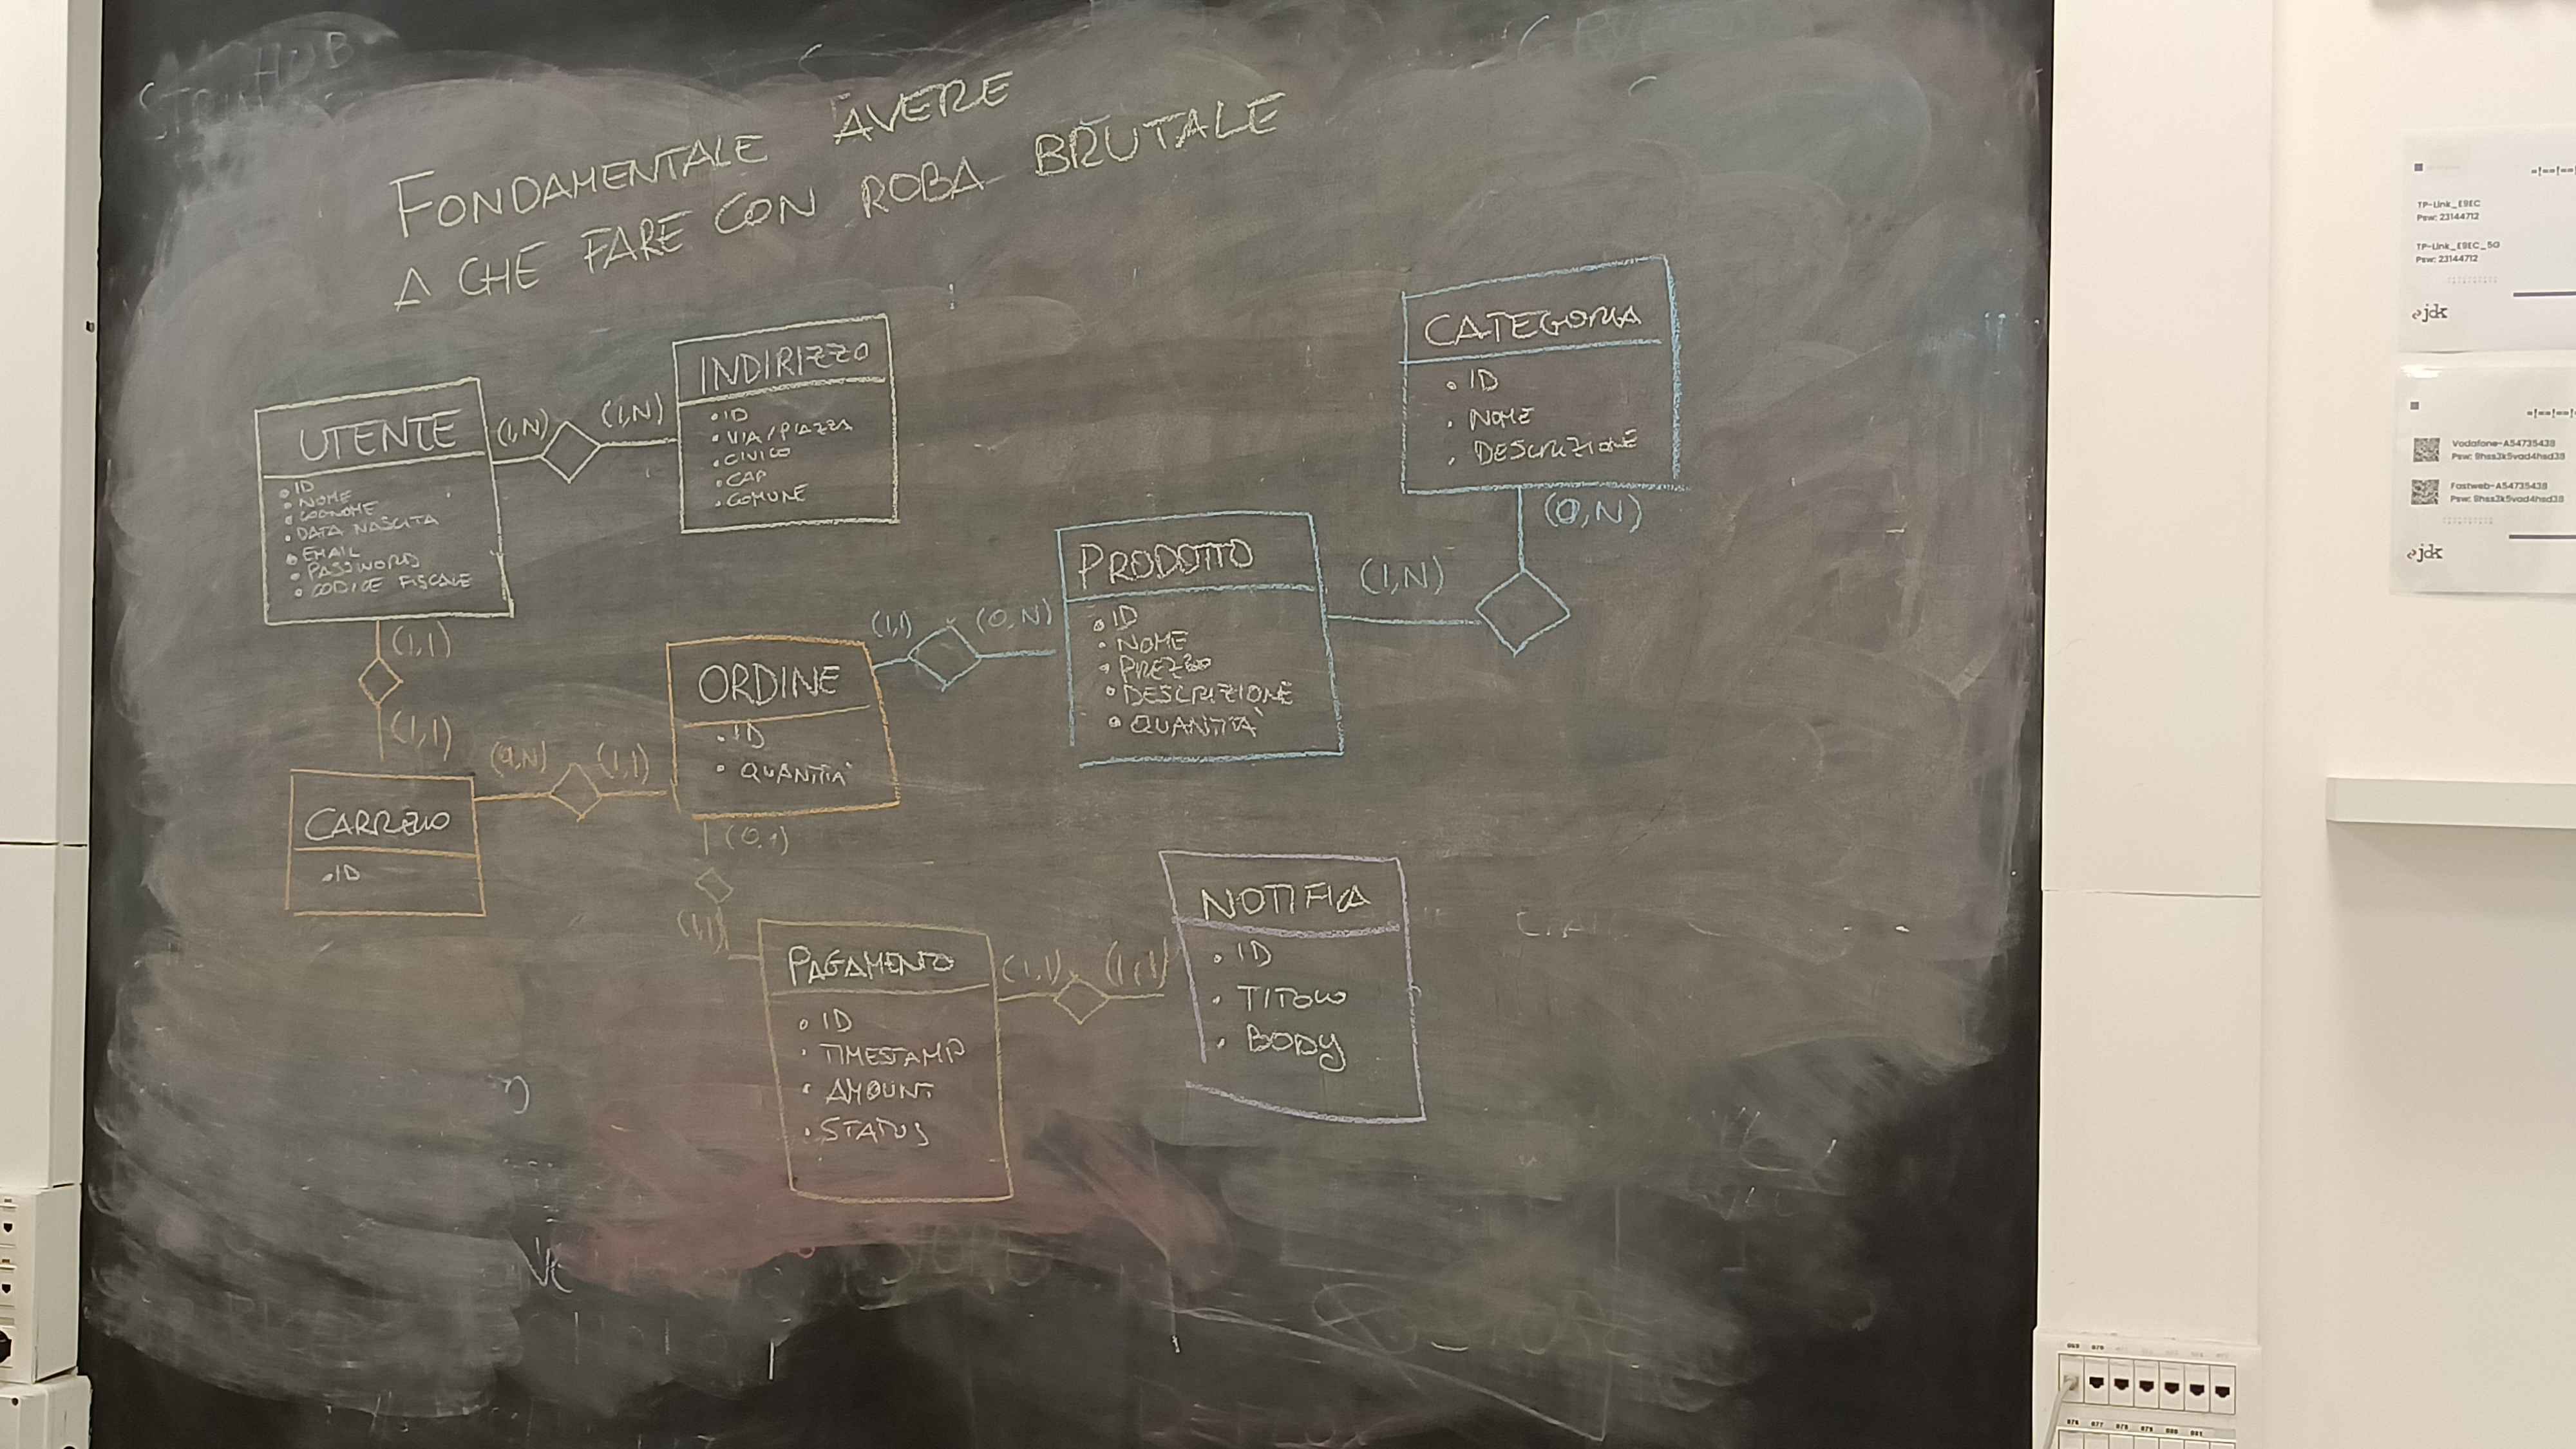 FONDAMENTALE AVERE
A CHE FARE CON ROBA BRUTALE
UTENTE
• ID
• NOME
• COGNOME
• DATA NASCITA
• EMAIL
• PASSWORD
• CODICE FISCALE
(1,N)
(1,N)
INDIRIZZO
• ID
• VIA/PIAZZA
• CIVICO
• CAP
• COMUNE
CATEGORIA
• ID
• NOME
• DESCRIZIONE
(0,N)
(1,N)
PRODOTTO
• ID
• NOME
• PREZZO
• DESCRIZIONE
• QUANTITA'
(1,1)
(0,N)
ORDINE
• ID
• QUANTITA'
(1,1)
(1,1)
(0,N)
(1,1)
CARRELLO
• ID
(0,1)
(1,1)
PAGAMENTO
• ID
• TIMESTAMP
• AMOUNT
• STATUS
(1,1)
(1,1)
NOTIFICA
• ID
• TITOLO
• BODY
TP-Link_E9EC
Psw: 23144712
TP-Link_E9EC_5G
Psw: 23144712
jdk
Vodafone-A54735438
Psw: 9hss2k5vad4hsd38
Fastweb-A54735438
Psw: 9hss2k5vad4hsd38
jdk